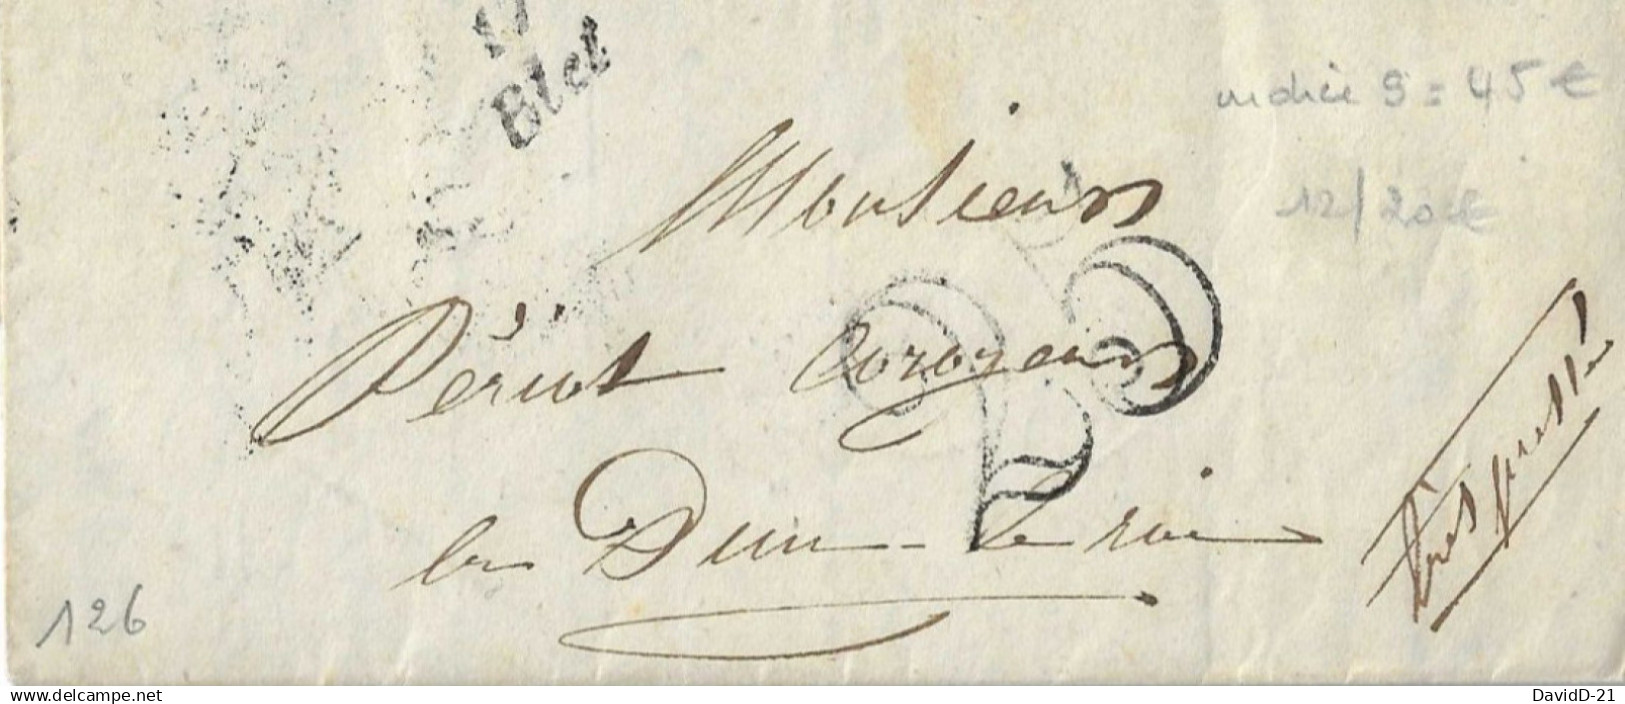 17
Blet
indice 9 = 45 €
12/20€
Monsieur
Périot Coroyeur
25
a Dun-le roi
très pressé
126
www.delcampe.net
DavidD-21